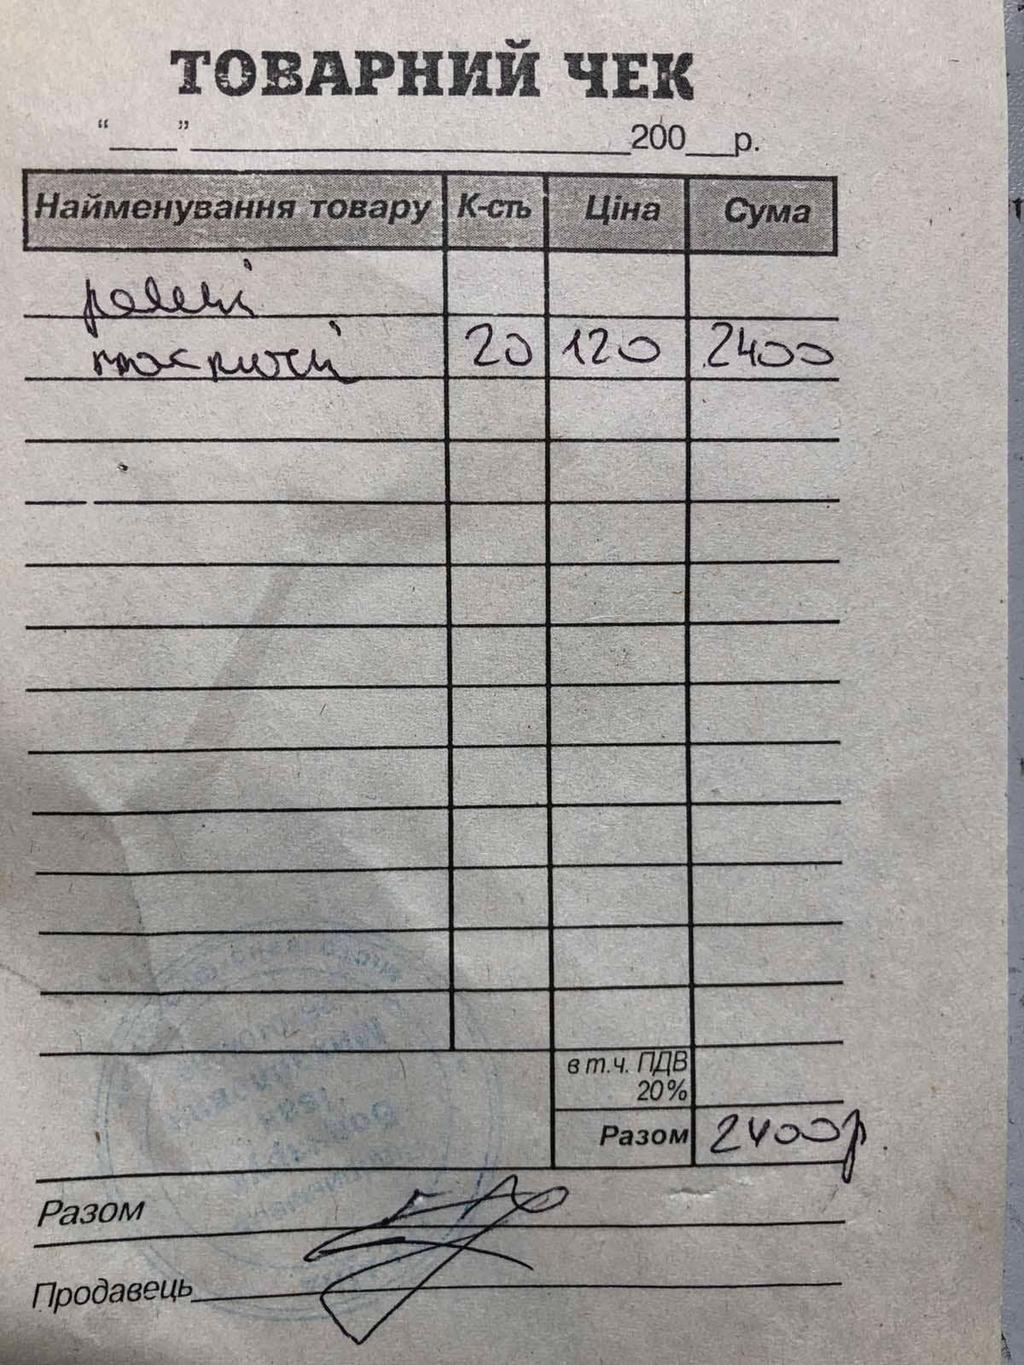 ТОВАРНИЙ ЧЕК
“___” ______________ 200__р.
Найменування товару К-сть Ціна Сума
20 120 2400
в т.ч. ПДВ
20%
Разом 2400р.
Разом
Продавець